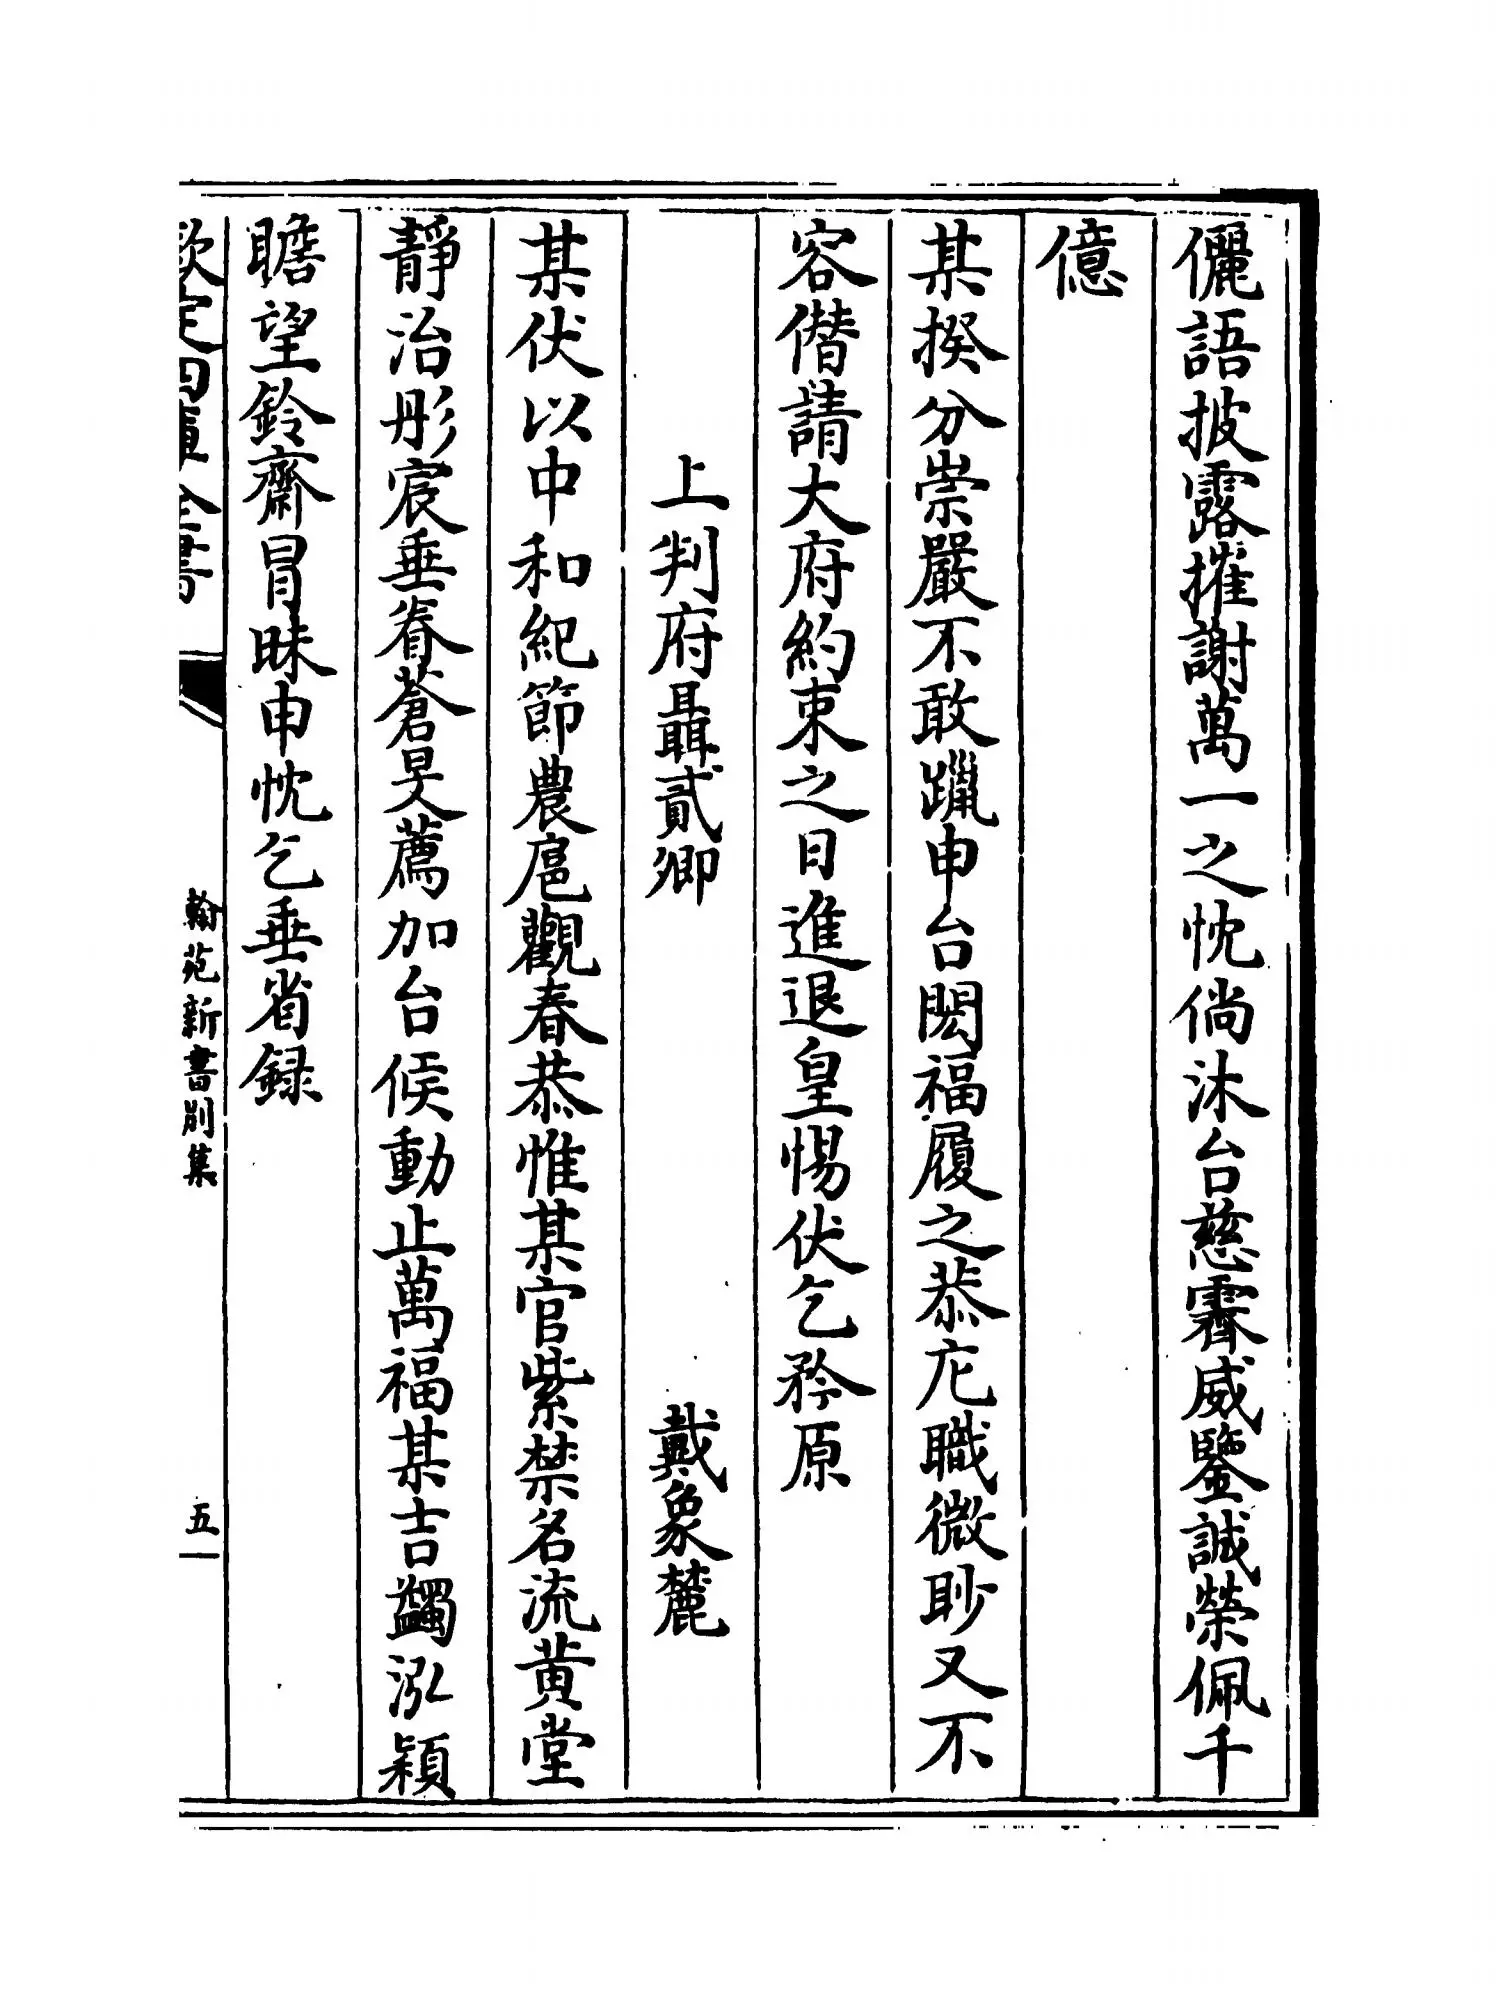 儷語披露摧謝萬一之忱倘沐台慈霽威鑒誠榮佩千
億
某揆分崇嚴不敢躐申台閎福履之恭庀職微眇又不
容僭請大府約束之日進退皇惕伏乞矜原
上判府聶貳卿 戴象麓
某伏以中和紀節農扈觀春恭惟某官紫禁名流黄堂
靜治彤宸垂眷蒼旻薦加台候動止萬福某吉蠲泓穎
瞻望鈴齋冒昧申忱乞垂省録
欽定四庫全書 翰苑新書別集 五